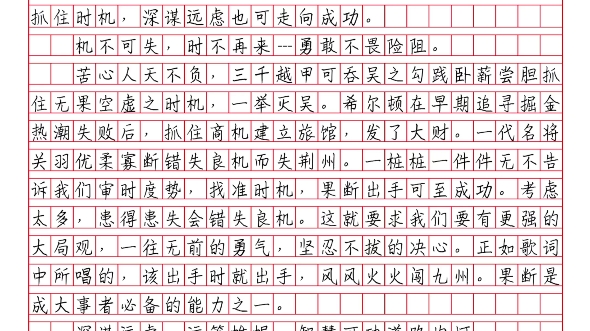 抓住时机，深谋远虑也可走向成功。
机不可失，时不再来---勇敢不畏险阻。
苦心人天不负，三千越甲可吞吴之勾践卧薪尝胆抓
住无果空虚之时机，一举灭吴。希尔顿在早期追寻掘金
热潮失败后，抓住商机建立旅馆，发了大财。一代名将
关羽优柔寡断错失良机而失荆州。一桩桩一件件无不告
诉我们审时度势，找准时机，果断出手可至成功。考虑
太多，患得患失会错失良机。这就要求我们要有更强的
大局观，一往无前的勇气，坚忍不拔的决心。正如歌词
中所唱的，该出手时就出手，风风火火闯九州。果断是
成大事者必备的能力之一。
深谋远虑，运筹帷幄，智慧可助道路